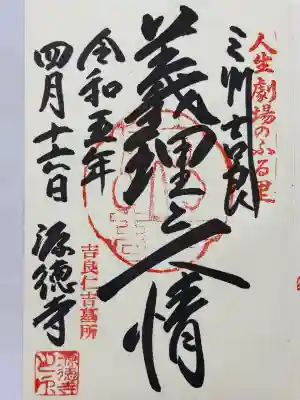 人生劇場のふる里
三州吉良
義理と人情
令和五年
四月十六日
源徳寺
吉良仁吉墓所